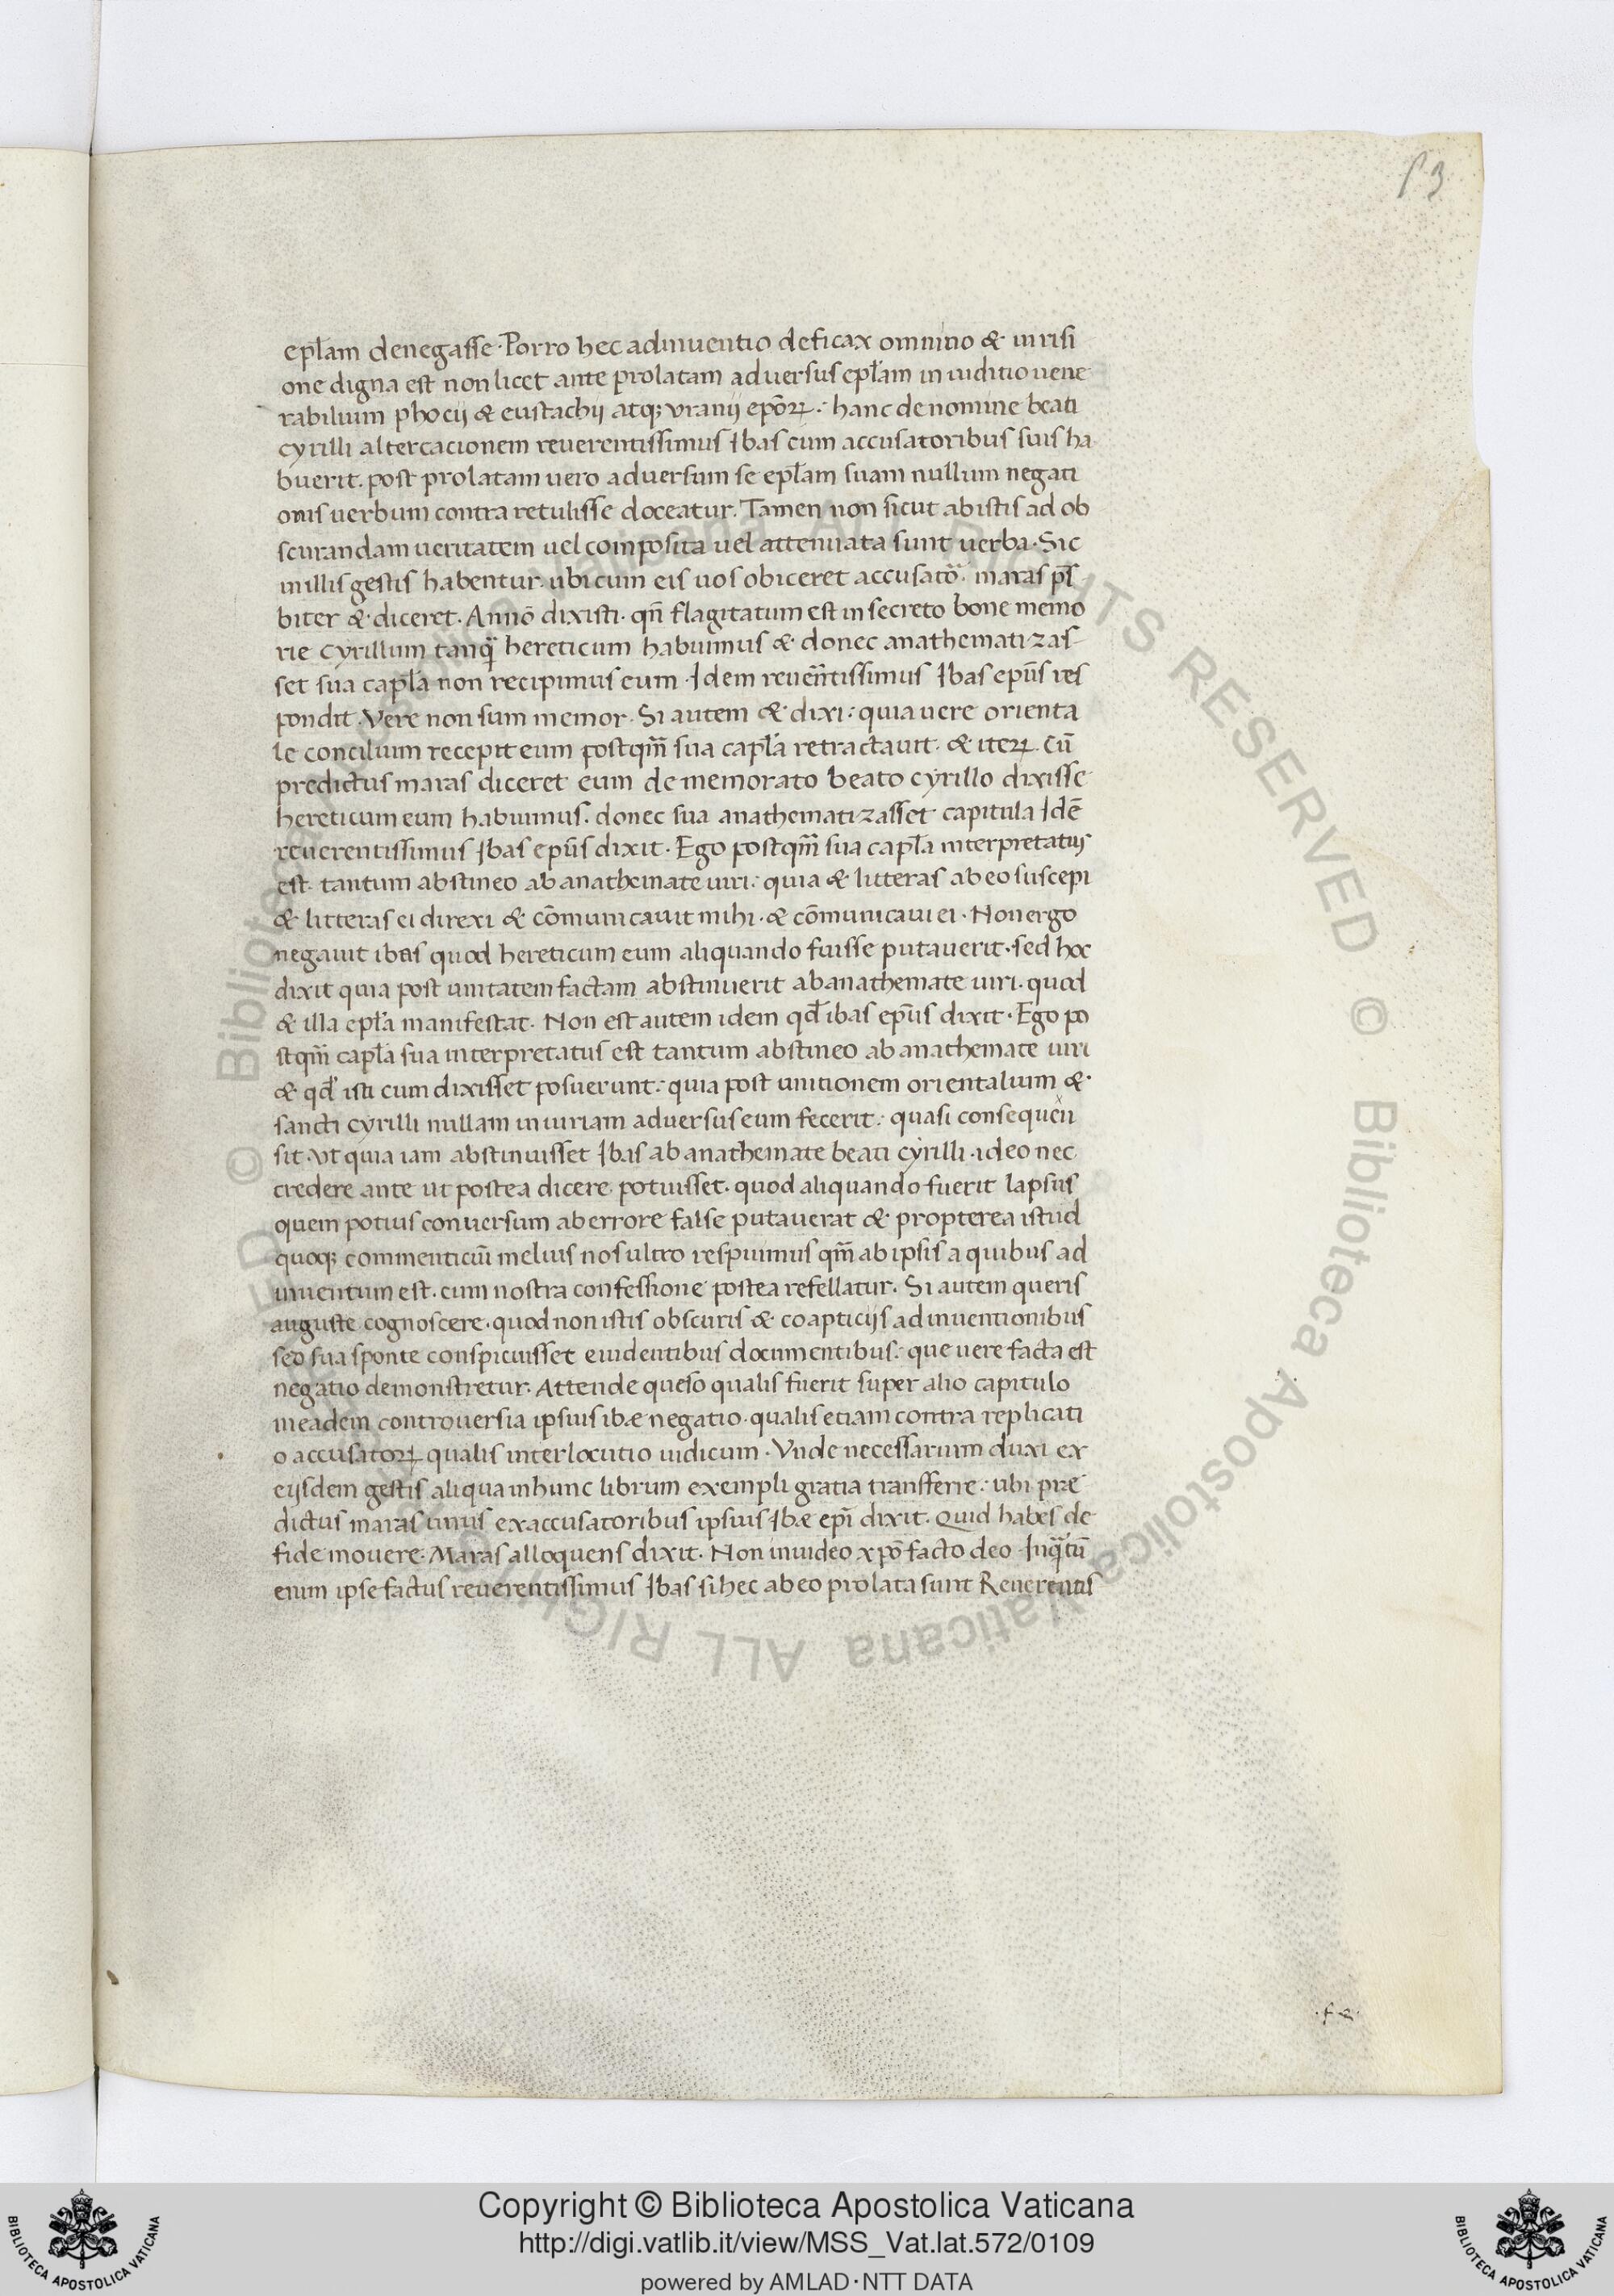 53
epl̄am denegasse. Porro hec adinuentio deficax omnino & inrisi
one digna est non licet ante prolatam aduersus epl̄am in iuditio uene
rabilium phocij & eustachij atq; vranij epōꝝ. hanc de nomine beati
cyrilli altercacionem reuerentissimus Ibas cum accusatoribus suis ha
buerit. post prolatam uero aduersum se epl̄am suam nullum negati
onis uerbum contra retulisse doceatur. Tamen non sicut ab istis ad ob
scurandam ueritatem uel composita uel attenuata sunt uerba. Sic
in illis gestis habentur. ubi cum eis uos obiceret accusator. maras p̄s
biter & diceret. Annō dixisti. qn̄ flagitatum est in secreto bone memo
rie cyrillum tanq̄ hereticum habuimus & donec anathematizas
set sua capl̄a non recipimus eum. Idem reuer̄ntissimus Ibas ep̄us res
pondit. Vere non sum memor. Si autem & dixi: quia uere orienta
le concilium recepit eum postqm̄ sua capl̄a retractauit. & iteꝝ. Cū
predictus maras diceret eum de memorato beato cyrillo dixisse
hereticum eum habuimus. donec sua anathematizasset capitula Idē
reuerentissimus Ibas ep̄us dixit. Ego postqm̄ sua capl̄a interpretatus
est. tantum abstineo ab anathemate uiri: quia & litteras ab eo suscepi
& litteras ei direxi & cōmunicauit mihi. & cōmunicaui ei. Non ergo
negauit ibas quod hereticum eum aliquando fuisse putauerit. sed hoc
dixit quia post unitatem factam abstinuerit ab anathemate uiri. quod
& illa epl̄a manifestat. Non est autem idem qd̄ ibas ep̄us dixit. Ego po
stqm̄ capl̄a sua interpretatus est tantum abstineo ab anathemate uiri
& qd̄ isti cum dixisset posuerunt: quia post unitionem orientalium &
sancti cyrilli nullam iniuriam aduersus eum fecerit: quasi consequen
sit. vt quia iam abstinuisset Ibas ab anathemate beati cyrilli. ideo nec
credere ante ut postea dicere potuisset. quod aliquando fuerit lapsus
quem potius conuersum ab errore false putauerat & propterea istud
quoq; commenticiū melius nos ultro respuimus qm̄ ab ipsis a quibus ad
inuentum est. cum nostra confessione postea refellatur. Si autem queris
auguste cognoscere. quod non istis obscuris & coapticijs adinuentionibus
sed sua sponte conspicuisset euidentibus documentibus: que uere facta est
negatio demonstretur. Attende queso qualis fuerit super alio capitulo
in eadem controuersia ipsius ibæ negatio. qualis etiam contra replicati
o accusatoꝝ qualis interlocutio iudicum. Vnde necessarium duxi ex
eijsdem gestis aliqua in hunc librum exempli gratia transferre: ubi præ
dictus maras unus ex accusatoribus ipsius Ibæ ep̄i dixit. Quid habes de
fide mouere. Maras alloquens dixit. Non inuideo xp̄o facto deo Inq̄tū
enim ipse factus reuerentissimus Ibas si hec ab eo prolata sunt Reuerentis
© Biblioteca Apostolica Vaticana ALL RIGHTS RESERVED
Copyright © Biblioteca Apostolica Vaticana
http://digi.vatlib.it/view/MSS_Vat.lat.572/0109
powered by AMLAD·NTT DATA
BIBLIOTECA APOSTOLICA VATICANA
BIBLIOTECA APOSTOLICA VATICANA